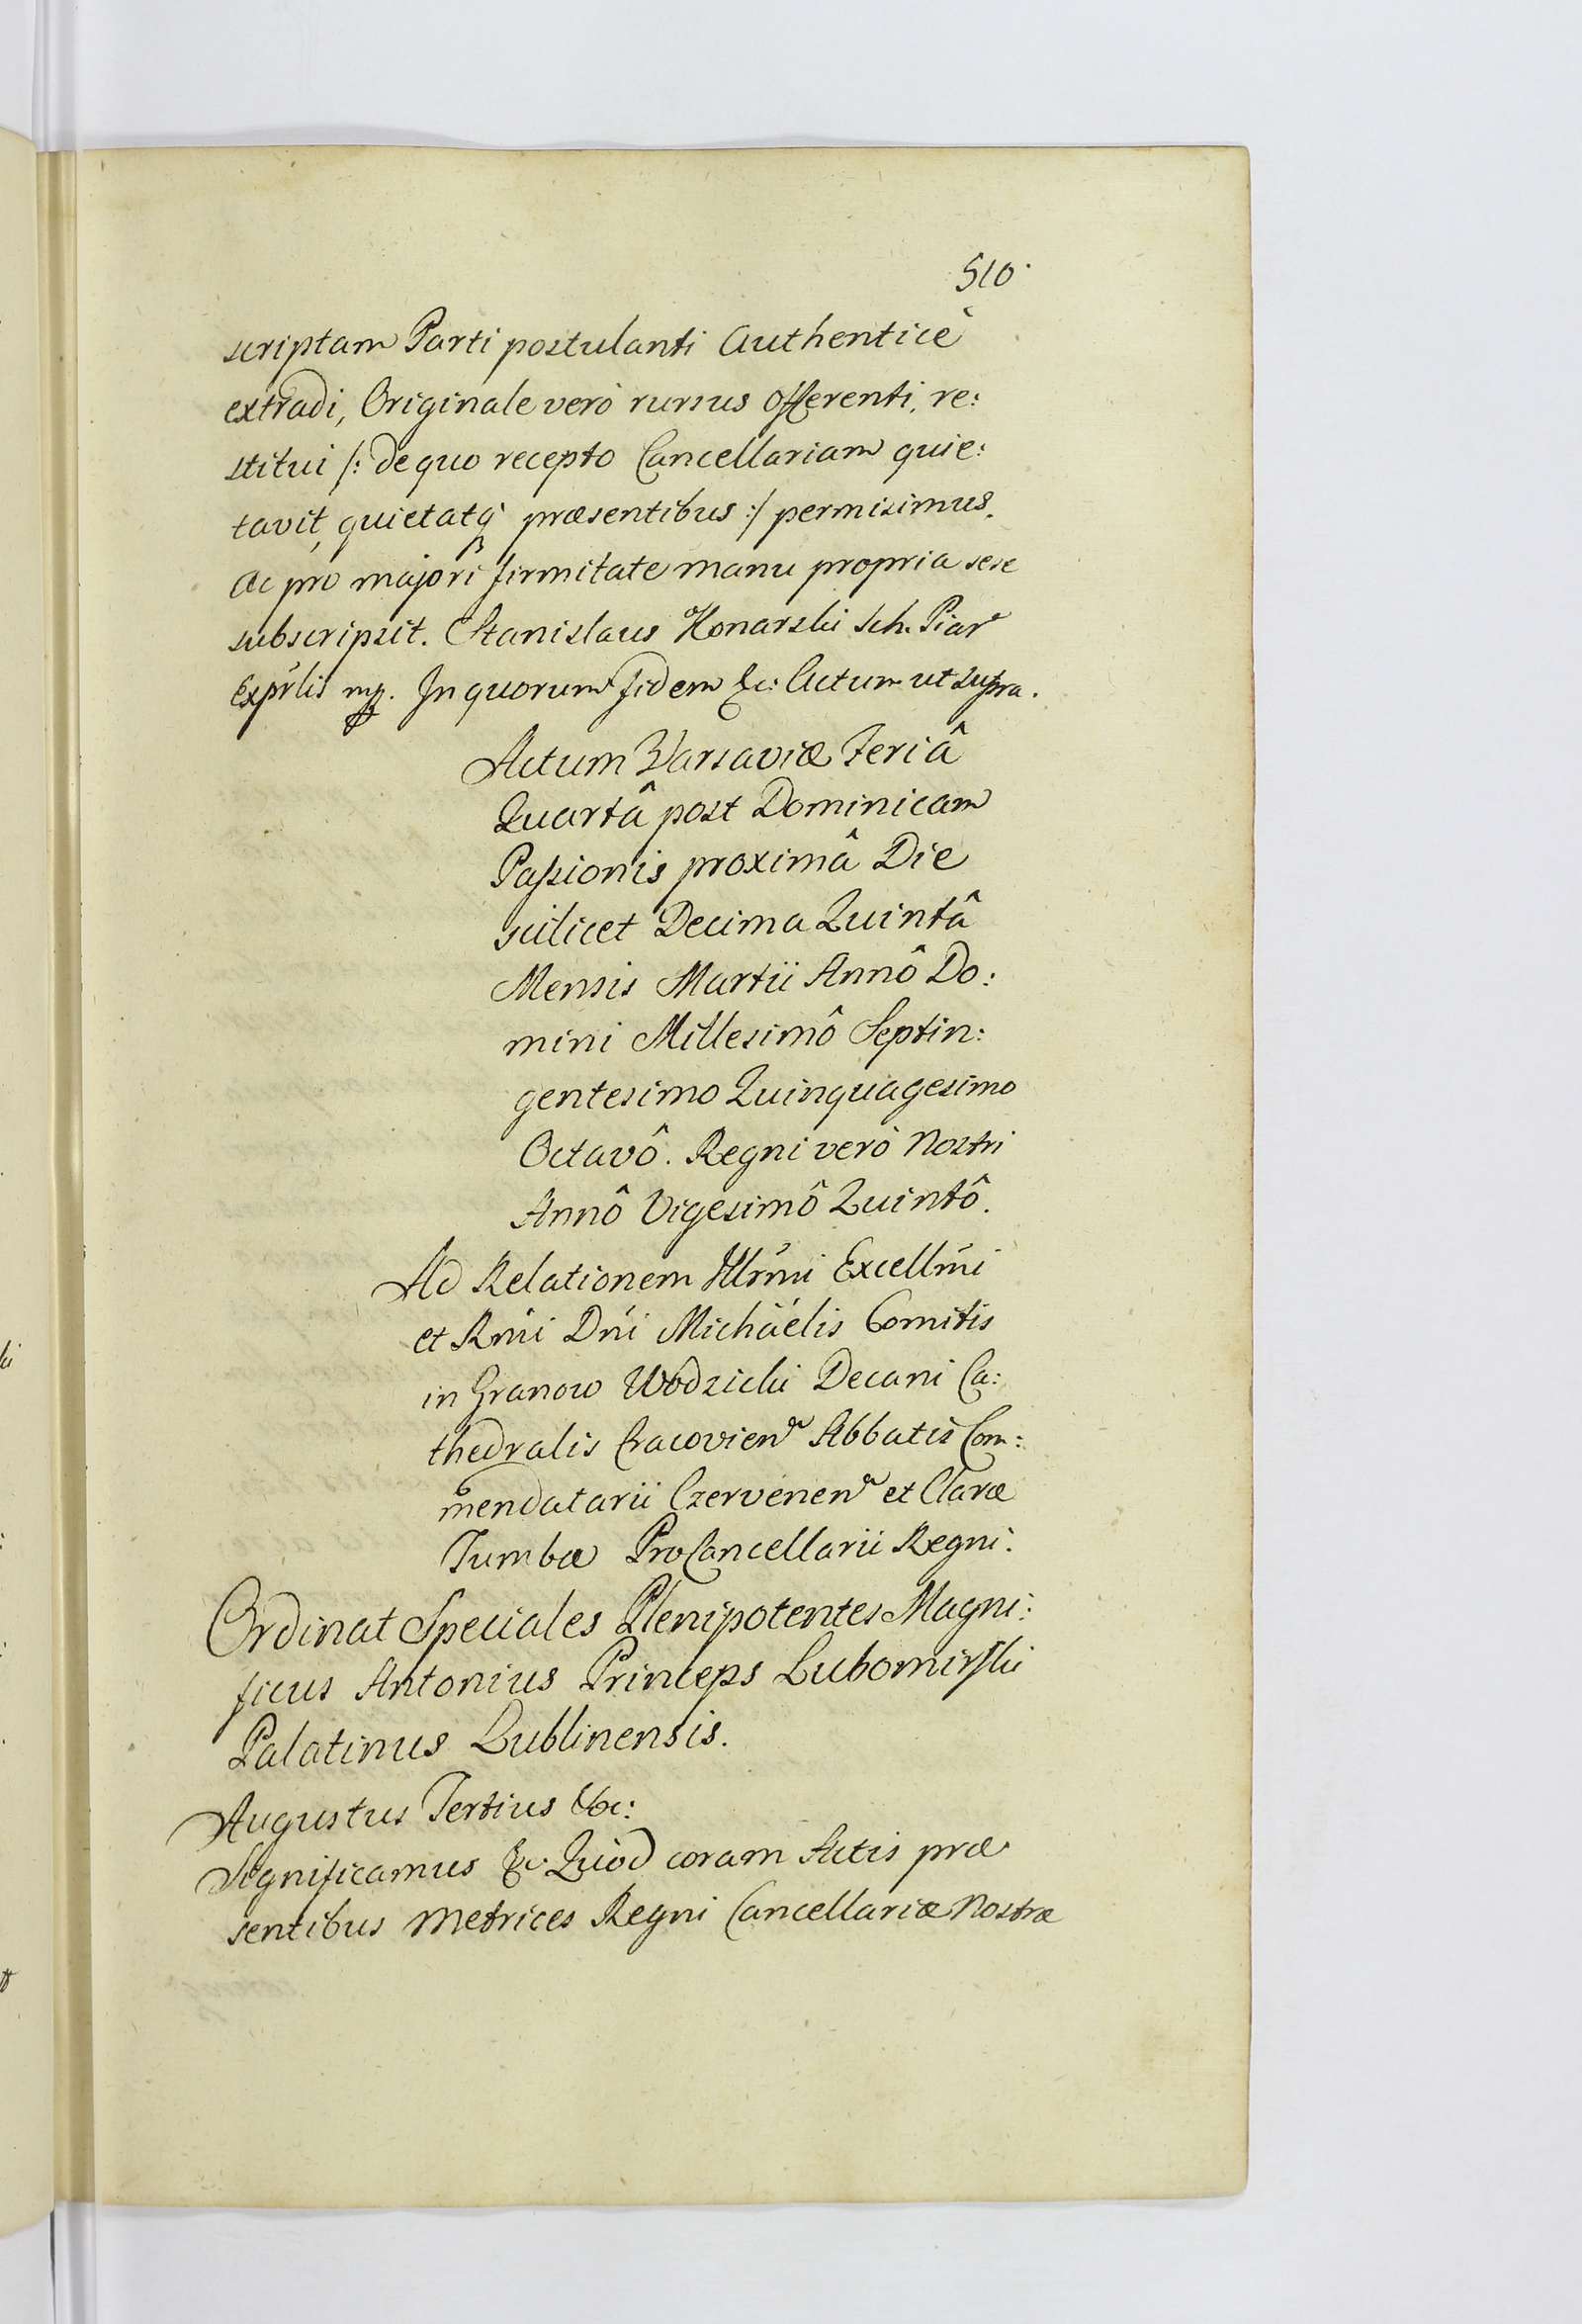 510.
scriptam Parti postulanti Authenticè
extradi, Originale verò rursus Offerenti, re:
stitui /: de quo recepto Cancellariam quie:
tavit, quietatq́ præsentibus :/ permisimus.
Ac pro majori firmitate manu propria sese
subscripsit. Stanislaus Konarski Sch. Piar
Exp̃rlis mp. In quorum fidem &c: Actum ut supra.
Actum Varsaviæ Feriâ
Quartâ post Dominicam
Passionis proximâ Die
scilicet Decima Quintâ
Mensis Martii Annô Do:
mini Millesimô Septin:
gentesimo Quinquagesimo
Octavô. Regni verò Nostri
Annô Vigesimô Quintô.
Ad Relationem Illrm̃i Excellm̃i
et Rm̃i Dńi Michäélis Comitis
in Granow Wodzicki Decani Ca:
thedralis Cracovien Abbatis Com:
mendatarii Czervenen et Claræ
Tumbæ ProCancellarii Regni.
Ordinat Speciales Plenipotentes Magni:
ficus Antonius Princeps Lubomirski
Palatinus Lublinensis.
Augustus Tertius &c:
Significamus &c. Quod coram Actis præ
sentibus Metrices Regni Cancellariæ Nostræ